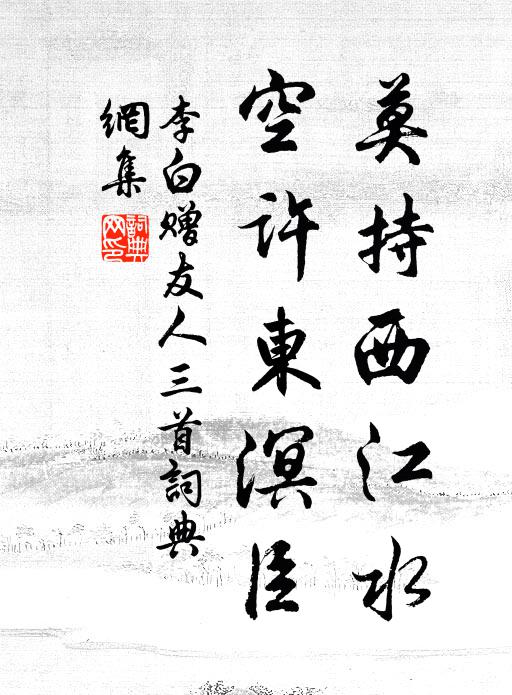 莫持西江水
空許東溟臣
李白贈友人三首詞典
網集
詞典
网印